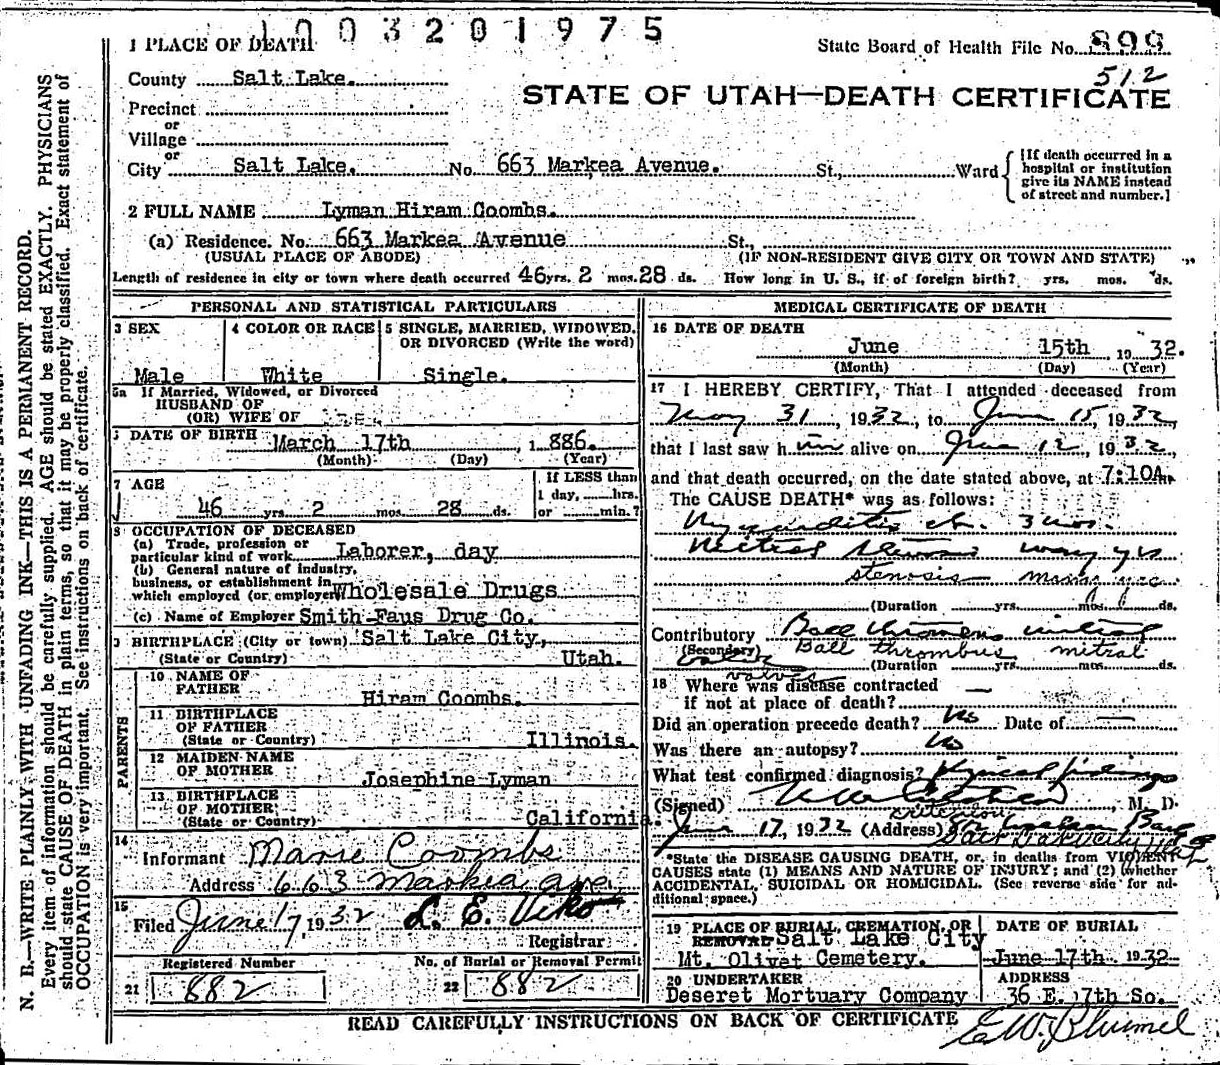 1003201975
1 PLACE OF DEATH
State Board of Health File No. 899
512
County Salt Lake.
STATE OF UTAH—DEATH CERTIFICATE
Precinct
or
Village
or
City Salt Lake. No. 663 Markea Avenue. St., Ward
[If death occurred in a
hospital or institution
give its NAME instead
of street and number.]
2 FULL NAME Lyman Hiram Coombs.
(a) Residence. No. 663 Markea Avenue St.,
(USUAL PLACE OF ABODE) (IF NON-RESIDENT GIVE CITY OR TOWN AND STATE)
Length of residence in city or town where death occurred 46 yrs. 2 mos. 28 ds. How long in U. S., if of foreign birth? yrs. mos. ds.
PERSONAL AND STATISTICAL PARTICULARS
3 SEX
Male
4 COLOR OR RACE
White
5 SINGLE, MARRIED, WIDOWED,
OR DIVORCED (Write the word)
Single.
5a If Married, Widowed, or Divorced
HUSBAND OF
(OR) WIFE OF
DATE OF BIRTH March 17th 1886.
(Month) (Day) (Year)
7 AGE
46 yrs. 2 mos. 28 ds.
If LESS than
1 day, hrs.
or min.?
8 OCCUPATION OF DECEASED
(a) Trade, profession or
particular kind of work Laborer, day
(b) General nature of industry,
business, or establishment in
which employed (or employer) Wholesale Drugs
(c) Name of Employer Smith-Faus Drug Co.
BIRTHPLACE (City or town) Salt Lake City,
(State or Country) Utah.
PARENTS
10 NAME OF
FATHER Hiram Coombs.
11 BIRTHPLACE
OF FATHER
(State or Country) Illinois.
12 MAIDEN NAME
OF MOTHER Josephine Lyman
13 BIRTHPLACE
OF MOTHER
(State or Country) California.
14
Informant Marie Coombs
Address 663 Markea Ave.
15
Filed June 17, 1932 L. E. Viko
Registrar
Registered Number No. of Burial or Removal Permit
21 882 22 882
MEDICAL CERTIFICATE OF DEATH
16 DATE OF DEATH
June 15th, 1932.
(Month) (Day) (Year)
17 I HEREBY CERTIFY, That I attended deceased from
May 31, 1932, to June 15, 1932,
that I last saw him alive on June 12, 1932,
and that death occurred, on the date stated above, at 7:10A.m.
The CAUSE DEATH* was as follows:
Myocarditis ch. 3 mos.
Mitral stenosis many yrs
stenosis many yrs
(Duration yrs. mos. ds.
Contributory Ball thrombus mitral
(Secondary) Ball thrombus mitral
valves (Duration yrs. mos. ds.
valves
18 Where was disease contracted
if not at place of death? —
Did an operation precede death? No Date of —
Was there an autopsy? No
What test confirmed diagnosis? Physical findings
(Signed) , M. D.
June 17, 1932 (Address)
Salt Lake City Utah
*State the DISEASE CAUSING DEATH, or, in deaths from VIOLENT
CAUSES state (1) MEANS AND NATURE OF INJURY; and (2) whether
ACCIDENTAL, SUICIDAL OR HOMICIDAL. (See reverse side for ad-
ditional space.)
19 PLACE OF BURIAL, CREMATION, OR
REMOVAL Salt Lake City
Mt. Olivet Cemetery.
DATE OF BURIAL
June 17th 1932
20 UNDERTAKER
Deseret Mortuary Company
ADDRESS
36 E. 7th So.
READ CAREFULLY INSTRUCTIONS ON BACK OF CERTIFICATE
N. B.—WRITE PLAINLY WITH UNFADING INK—THIS IS A PERMANENT RECORD.
Every item of information should be carefully supplied. AGE should be stated EXACTLY. PHYSICIANS
should state CAUSE OF DEATH in plain terms, so that it may be properly classified. Exact statement of
OCCUPATION is very important. See instructions on back of certificate.